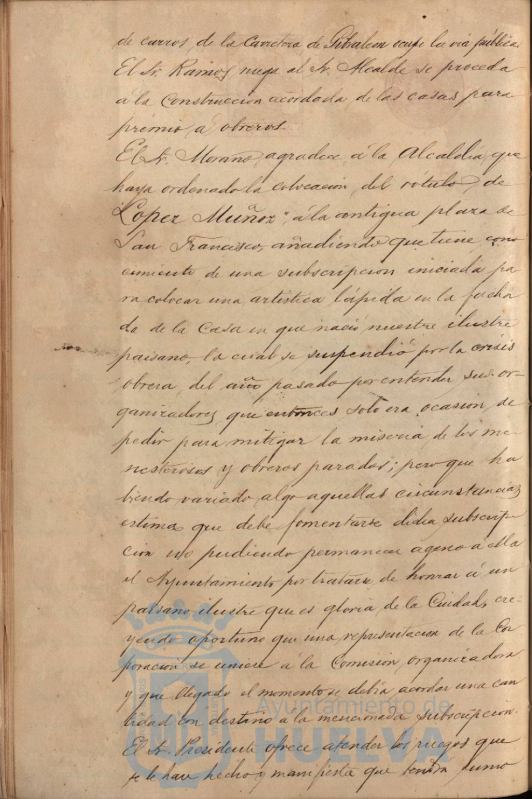 de carros, de la Carretera de Gibraleon ocupe la via pública
El Sr. Ramos ruega al Sr. Alcalde se proceda
á la Construccion acordada de las casas para
premio, á obreros.
El Sr. Morano, agradece, á la Alcaldía, que
haya ordenado la colocación, del rótulo, de
"Lopez Muñoz", á la antigua plaza de
San Francisco, añadiendo que tiene cono
cimiento de una subscripcion iniciada pa
ra colocar una artistica lápida en la facha
da de la Casa en que nació nuestro ilustre
paisano, la cual se suspendió por la crisis
obrera del año pasado por entender sus or-
ganizadores que entonces solo era ocasion, de
pedir para mitigar la miseria de los me
nesterosos y obreros parados; pero que ha
biendo variado algo aquellas circunstancias
estima que debe fomentarse dicha subscrip
cion no pudiendo permanecer ageno á ella
el Ayuntamiento por tratarse de honrar á un
paisano ilustre que es gloria de la Ciudad, cre-
yendo oportuno que una representacion de la Cor
poracion se uniese á la Comision organizadora
y que llegado el momento se debia acordar una can
tidad con destino á la mencionada subscripcion.
El Sr. Presidente ofrece atender los ruegos que
se le han hecho y manifiesta que tendrá sumo
Ayuntamiento de
HUELVA